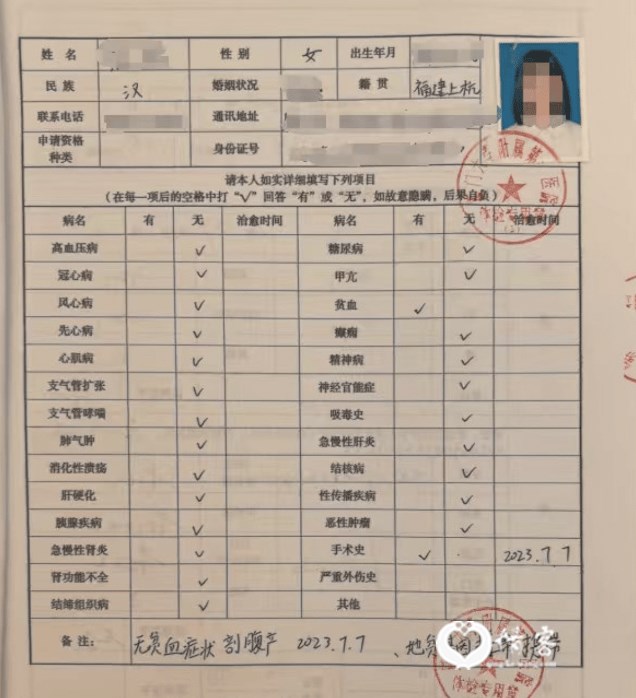 姓名 性别 女 出生年月
民族 汉 婚姻状况 籍贯 福建上杭
联系电话 通讯地址
申请资格种类 身份证号
请本人如实详细填写下列项目
(在每一项后的空格中打“√”回答“有”或“无”,如故意隐瞒,后果自负)
病名 有 无 治愈时间 病名 有 无 治愈时间
高血压病 √ 糖尿病 √
冠心病 √ 甲亢 √
风心病 √ 贫血 √
先心病 √ 癫痫 √
心肌病 √ 精神病 √
支气管扩张 √ 神经官能症 √
支气管哮喘 √ 吸毒史 √
肺气肿 √ 急慢性肝炎 √
消化性溃疡 √ 结核病 √
肝硬化 √ 性传播疾病 √
胰腺疾病 √ 恶性肿瘤 √
急慢性肾炎 √ 手术史 √ 2023.7.7
肾功能不全 √ 严重外伤史
结缔组织病 √ 其他
备注: 无贫血症状 剖腹产 2023.7.7 、地贫基因